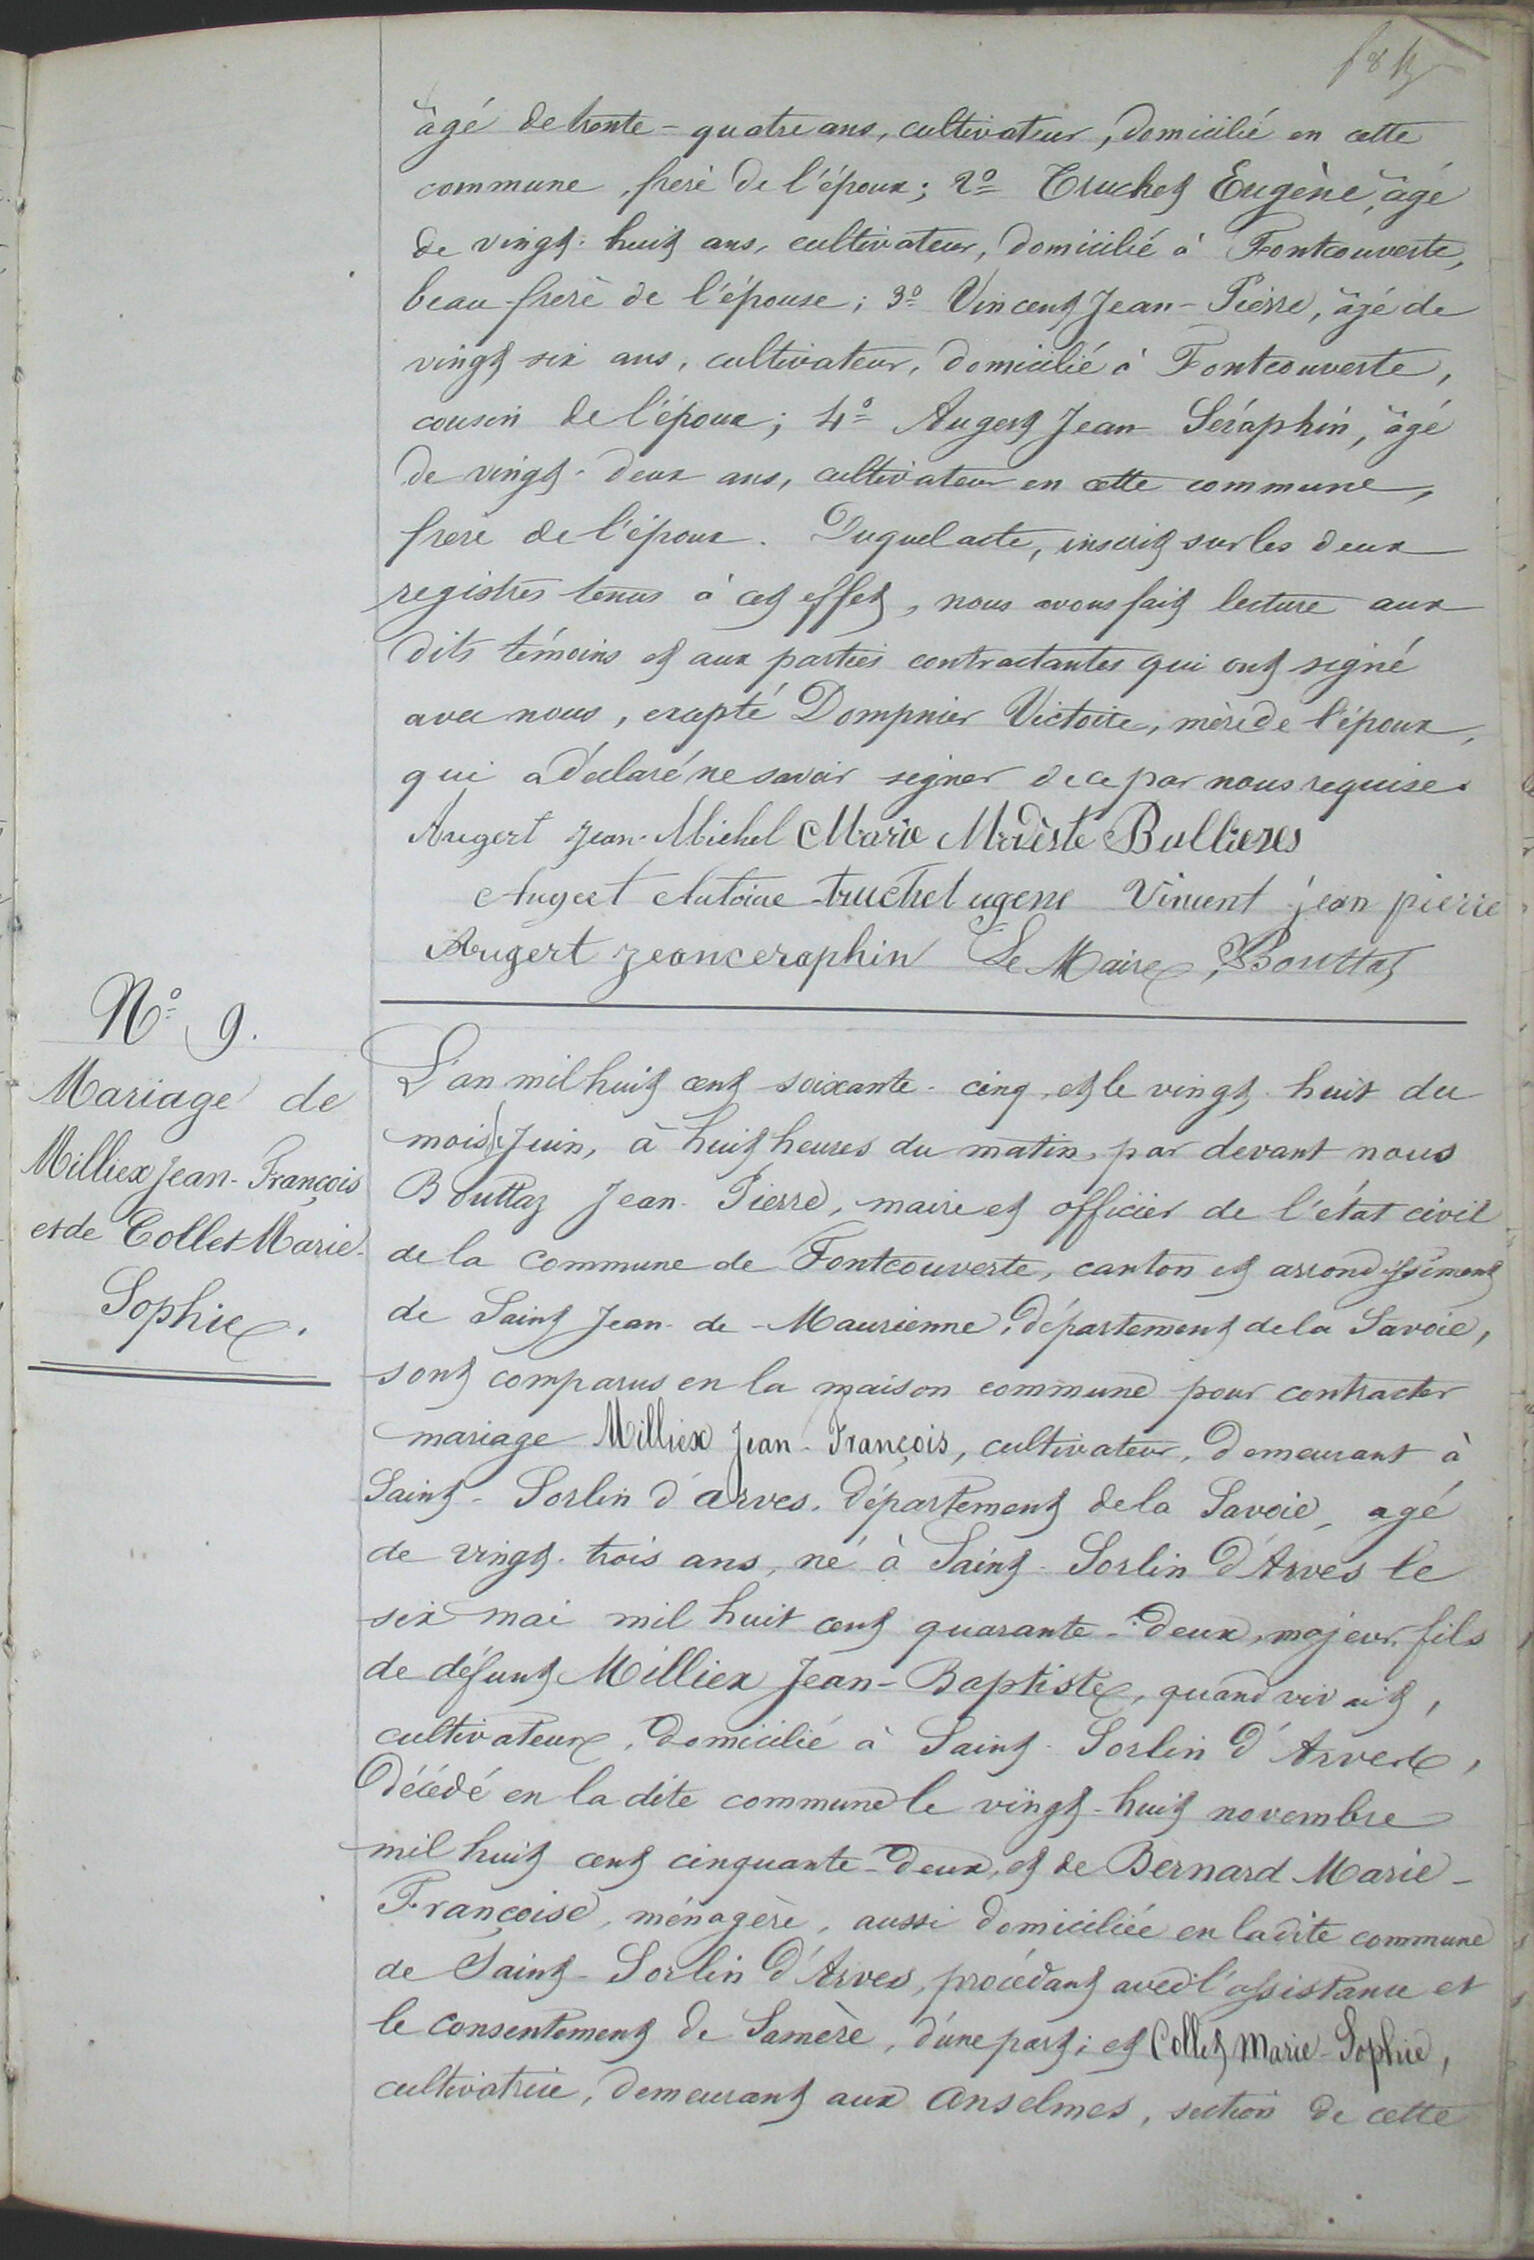 âgé de trente-quatre ans, cultivateur, domicilié en cette
commune, frère de l'époux; 2º Truchet Eugène, âgé
de vingt-huit ans, cultivateur, domicilié à Fontcouverte,
beau-frère de l'épouse; 3º Vincent Jean-Pierre, âgé de
vingt-six ans, cultivateur, domicilié à Fontcouverte,
cousin de l'époux; 4º Augert Jean Séraphin, âgé
de vingt-deux ans, cultivateur en cette commune,
frère de l'époux. Duquel acte, inscrit sur les deux
registres tenus à cet effet, nous avons fait lecture aux
dits témoins et aux parties contractantes qui ont signé
avec nous, excepté Dompnier Victoire, mère de l'époux,
qui a déclaré ne savoir signer de ce par nous requise.
Augert Jean-Michel Marie Modeste Bullieres
Augert Antoine truchet ugene Vincent jean pierre
Augert jeanceraphin Le Maire, Bouttaz
Nº 9.
Mariage de
Milliex Jean-François
et de Collet Marie-
Sophie.
L'an mil huit cent soixante-cinq, et le vingt-huit du
mois de Juin, à huit heures du matin, par devant nous
Bouttaz Jean-Pierre, maire et officier de l'état civil
de la commune de Fontcouverte, canton et arrondissement
de Saint Jean-de-Maurienne, département de la Savoie,
sont comparus en la maison commune pour contracter
mariage Milliex Jean-François, cultivateur, demeurant à
Saint-Sorlin d'arves, département de la Savoie, agé
de vingt-trois ans, né à Saint-Sorlin d'Arves le
six mai mil huit cent quarante-deux, majeur, fils
de défunt Milliex Jean-Baptiste, quand vivait,
cultivateur, domicilié à Saint-Sorlin d'Arves,
décédé en la dite commune le vingt-huit novembre
mil huit cent cinquante-deux, et de Bernard Marie-
Françoise, ménagère, aussi domiciliée en ladite commune
de Saint-Sorlin d'Arves, procédant avec l'assistance et
le consentement de Samère, d'une part; et Collet Marie-Sophie,
cultivatrice, demeurant aux anselmes, section de cette